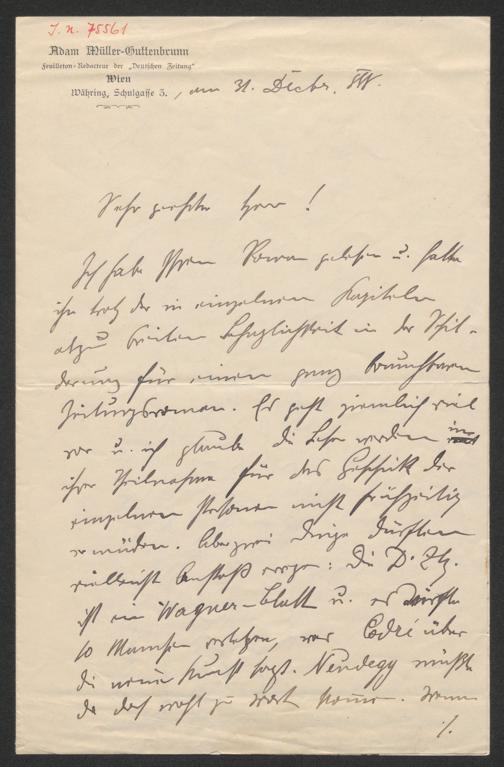 J. N. 75561
Adam Müller-Guttenbrunn
Feuilleton-Redacteur der „Deutschen Zeitung“
Wien
Währing, Schulgasse 3., am 31. Decbr.
Sehr geehrter Herr!
Ich habe Ihren Roman gelesen u. halte
ihn trotz der in einzelnen Kapiteln
allzu breiten Behaglichkeit in der Schil-
derung für einen ganz brauchbaren
Zeitungsroman. Es geht ziemlich viel
vor u. ich glaube die Leser werden in
ihrer Theilnahme für das Geschick der
einzelnen Personen nicht frühzeitig
ermüden. Aber zwei Dinge dürften
vielleicht Anstoß erregen: die D. Ztg.
ist ein Wagner-Blatt u. es dürfte
so Manchen verletzen, was Codré über
die neue Kunst sagt. Nendegg müßte
da doch wohl zu Wort kommen. Wenn
./.